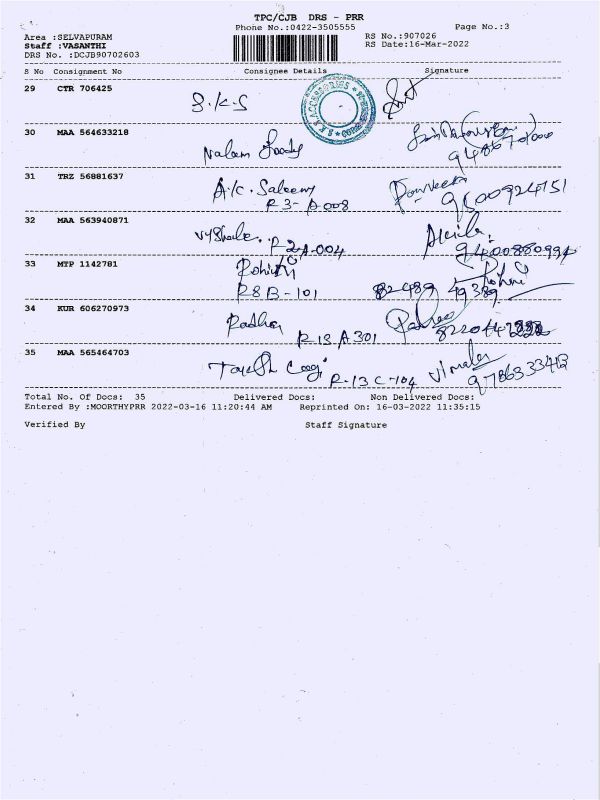 TPC/CJB DRS - PRR
Phone No.:0422-3505555 Page No.:3
Area :SELVAPURAM RS No.:907026
Staff :VASANTHI RS Date:16-Mar-2022
DRS No. :DCJB90702603
S No Consignment No Consignee Details Signature
29 CTR 706425
S.K.S
30 MAA 564633218
Nalam Foods
31 TRZ 56881637
A/c. Saleem
R3-A-008
32 MAA 563940871
R2A-004
33 MTP 1142781
Rohini
R8B-101 82489 49389
34 KUR 606270973
Radha
R 13 A 301
35 MAA 565464703
R-13 C-104 Vimala
9786333412
Total No. Of Docs: 35 Delivered Docs: Non Delivered Docs:
Entered By :MOORTHYPRR 2022-03-16 11:20:44 AM Reprinted On: 16-03-2022 11:35:15
Verified By Staff Signature